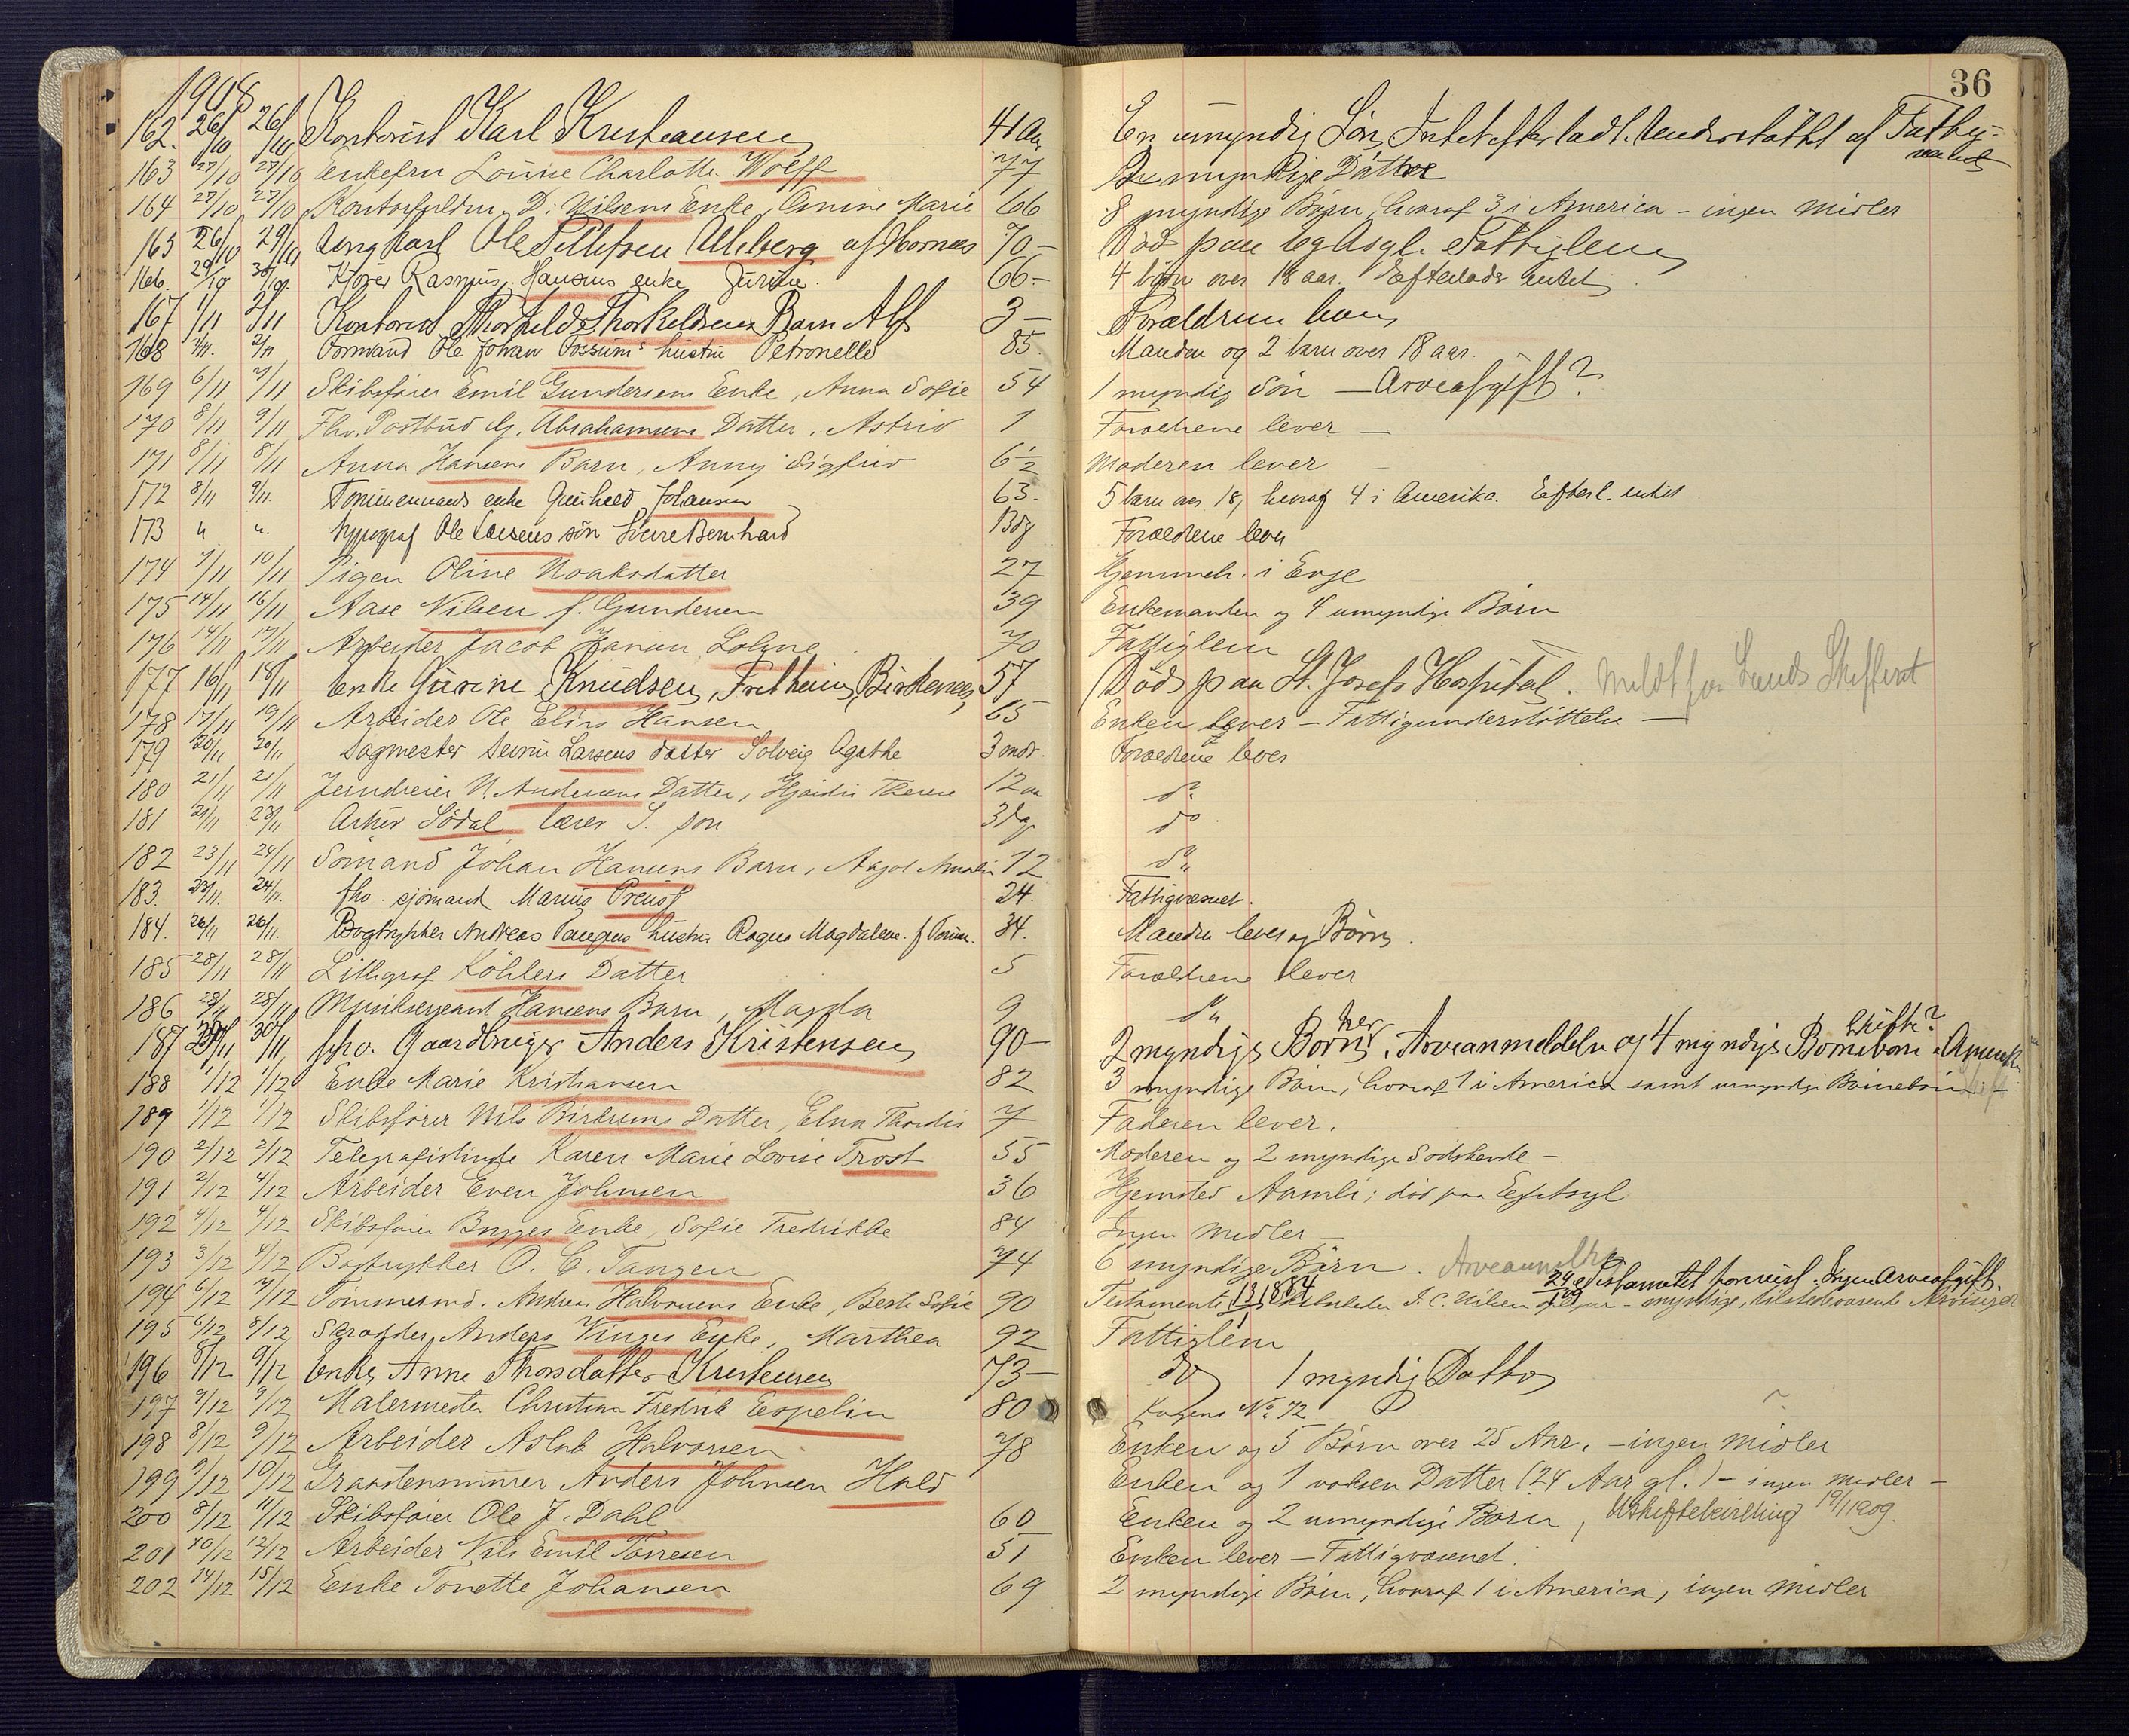 36
1908
162. 26/10 26/10 Kontorist Karl Kristiansen 41 Aar En umyndig Søn, Intet efterladt. Understøttet af Fattigvæsenet
163 27/10 27/10 Enkefru Louise Charlotte Wolff 77 2 myndige Døttre
164 27/10 27/10 D. Nilsens Enke, Amine Marie 66 8 myndige Børn, hvoraf 3 i America - ingen Midler
165 26/10 29/10 Ungkarl Ole Tellefsen Uleberg af Hornnes 70- Død paa Egs Asyl. Fattiglem
166. 29/10 30/10 Kjører Rasmus Hansens enke Jurine. 66.- 4 børn over 18 aar. Efterlader intet
167 1/11 2/11 Kontorist Thorkild Thorkildsens Barn Alf 3- Forældrene leve
168 1/11. 2/11 Formand Ole Johan Fossums hustru Petronelle 85. Manden og 2 barn over 18 aar.
169 6/11 7/11 Skibsfører Emil Gundersens Enke, Anna Sofie 54 1 myndig Søn - Arveafgift?
170 8/11 9/11 Fhv. Postbud G. Abrahamsens Datter, Astrid 1 Forældrene lever -
171 8/11 8/11 Anna Hansens Barn, Anny Sigfrid 6 1/2 Moderen lever -
172 8/11 9/11. Tømmermands enke Gunhild Johansen 63. 5 barn over 18, hvoraf 4 i Amerika. Efterl. intet
173 " ". Typograf Ole Larsens søn Sverre Bernhard 1 Dag Forældrene lever
174 9/11 10/11 Pigen Oline Noaksdatter 27 Hjemmeh. i Evje
175 14/11 16/11 Aase Nilsen f. Gundersen 39 Enkemanden og 4 umyndige Børn
176 14/11 17/11 Arbeider Jacob Hansen Lohne 70 Fattiglem
177 16/11 18/11 Enke Gurine Knudsen, Fretheim, Birkenes 57 Død paa St. Josefs Hospital. Meldt for Lands Skifteret
178 17/11 19/11 Arbeider Ole Elias Hansen 65 Enken lever - Fattigunderstøttelse -
179 20/11 20/11 Sagmester Severin Larsens datter Solveig Agathe 3 mdr. Forældrene lever
180 21/11 21/11 Jerndreier N. Andersens Datter, Hjørdis Therese 12 do
181 21/11 23/11 Arthur Sødal, lærer S. søn 3 dag do
182 23/11 24/11 Sømand Johan Hansens Barn, Aagot Amalie 12 do
183. 23/11. 24/11. fhv. sjømand Marius Preuss 24. Fattigvæsenet.
184. 26/11 26/11. Bogtrykker Andreas Tangens hustru Ragna Magdalene 34. Manden lever og Børn.
185 28/11 28/11 Lithograf Köhlers Datter 5 Forældrene lever
186 28/11 28/11 Musiksergeant Hansens Barn, Magda 9 do
187 29/11 30/11 fhv. Gaardbruger Anders Kristensen 90- 2 myndige Børn her. Arveanmeldelse og 4 myndige Børnebørn i Amerika Skifte?
188 1/12 1/12 Enke Marie Kristiansen 82 3 myndige Børn, hvoraf 1 i America samt umyndige Børnebørn
189 1/12 1/12 Skibsfører Nils Datter, Elna Thordis 7 Faderen lever.
190 2/12 2/12 Telegrafistinde Karen Marie Lovise Trost 55 Moderen og 2 myndige Sødskende -
191 2/12 4/12 Arbeider Even Johnsen 36 Hjemsted Aamli; død paa Egs Asyl
192 4/12 4/12 Skibsfører Bugges Enke, Sofie Fredrikke 84 Ingen Midler -
193 3/12 4/12 Bogtrykker O. C. Tangen 74 6 myndige Børn. Arveanmeldt
194 6/12 7/12 Tømmermd. Andreas Halvorsens Enke, Berte Sofie 90 Testamente J. C. Nilsen - myndige, tilstedeværende Arvinger
24/9 1884 Testamentet forevist. Ingen Arveafgift.
195 6/12 8/12 Skrædder Anders Vinges Enke, Marthea 92 Fattiglem
196 8/12 9/12 Enke Anne Thorsdatter Kristensen 73- do 1 myndig Datter
197 9/12 9/12 Malermester Christian Fredrik Espelin 80 No 72 ?
198 8/12 9/12 Arbeider Aslak Halvorsen 78 Enken og 5 Børn over 25 Aar, - ingen Midler
199 9/12 10/12 Graastensmurer Anders Johnsen Hald Enken og 1 voksen Datter (24 Aar gl.) - ingen Midler -
200 8/12 11/12 Skibsfører Ole J. Dahl 60 Enken og 2 umyndige Børn, Uskiftebevilling 19/1 1909.
201 10/12 12/12 Arbeider Nils Emil Tørresen 51 Enken lever - Fattigvæsenet.
202 14/12 15/12 Enke Tonette Johansen 69 2 myndige Børn, hvoraf 1 i America, ingen Midler